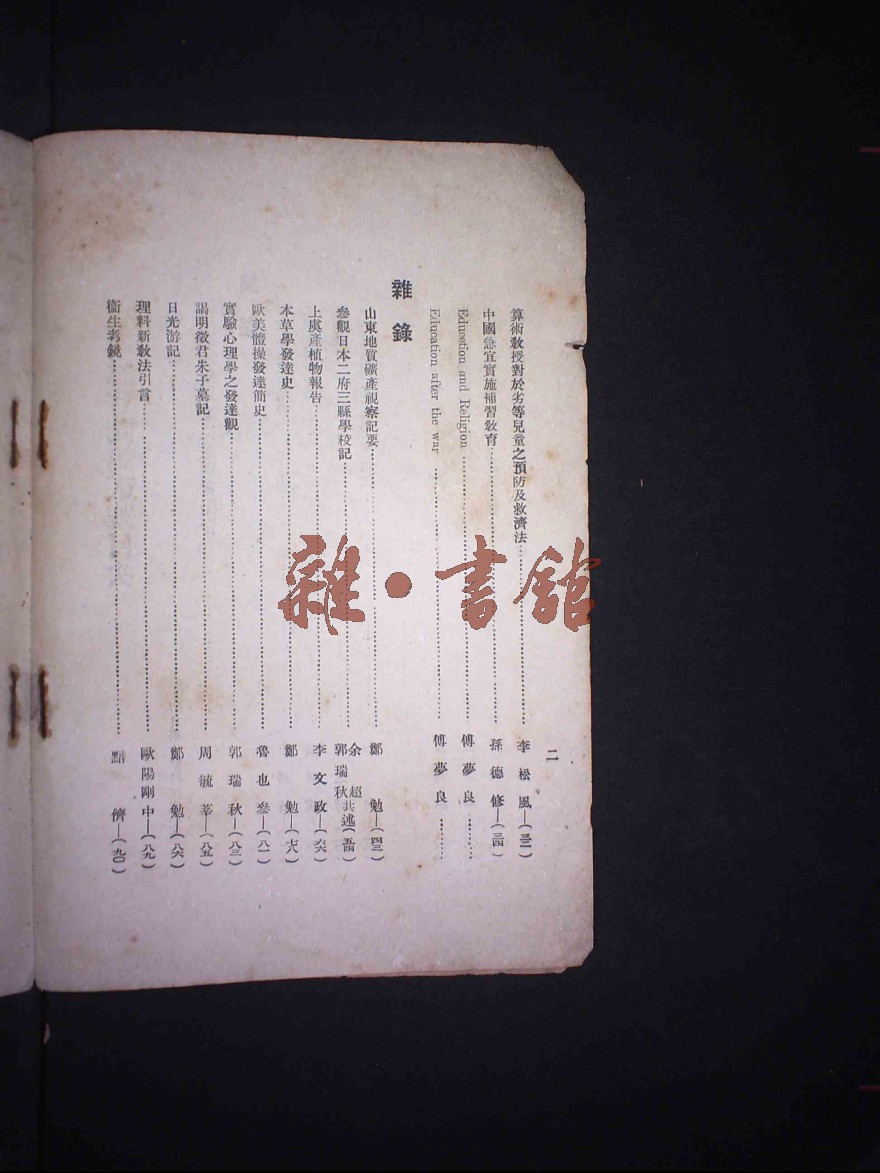 二
算術敎授對於劣等兒童之預防及救濟法…………李松風—(三二)
中國急宜實施補習敎育…………孫德修—(三四)
Education and Religion…………傅夢良…………
Education after the war…………傅夢良…………
雜錄
山東地質礦產視察記要…………鄭勉—(四三)
參觀日本二府三縣學校記…………余超郭瑞秋共述(五四)
上虞產植物報告…………李文政—(六六)
本草學發達史…………鄭勉—(七八)
歐美體操發達簡史…………魯也參—(八一)
實驗心理學之發達觀…………郭瑞秋—(八三)
謁明徵君朱子墓記…………周毓莘—(八五)
日光游記…………鄭勉—(八六)
理料新敎法引言…………歐陽剛中—(八九)
衞生考鏡…………儕—(九〇)
雜·書館